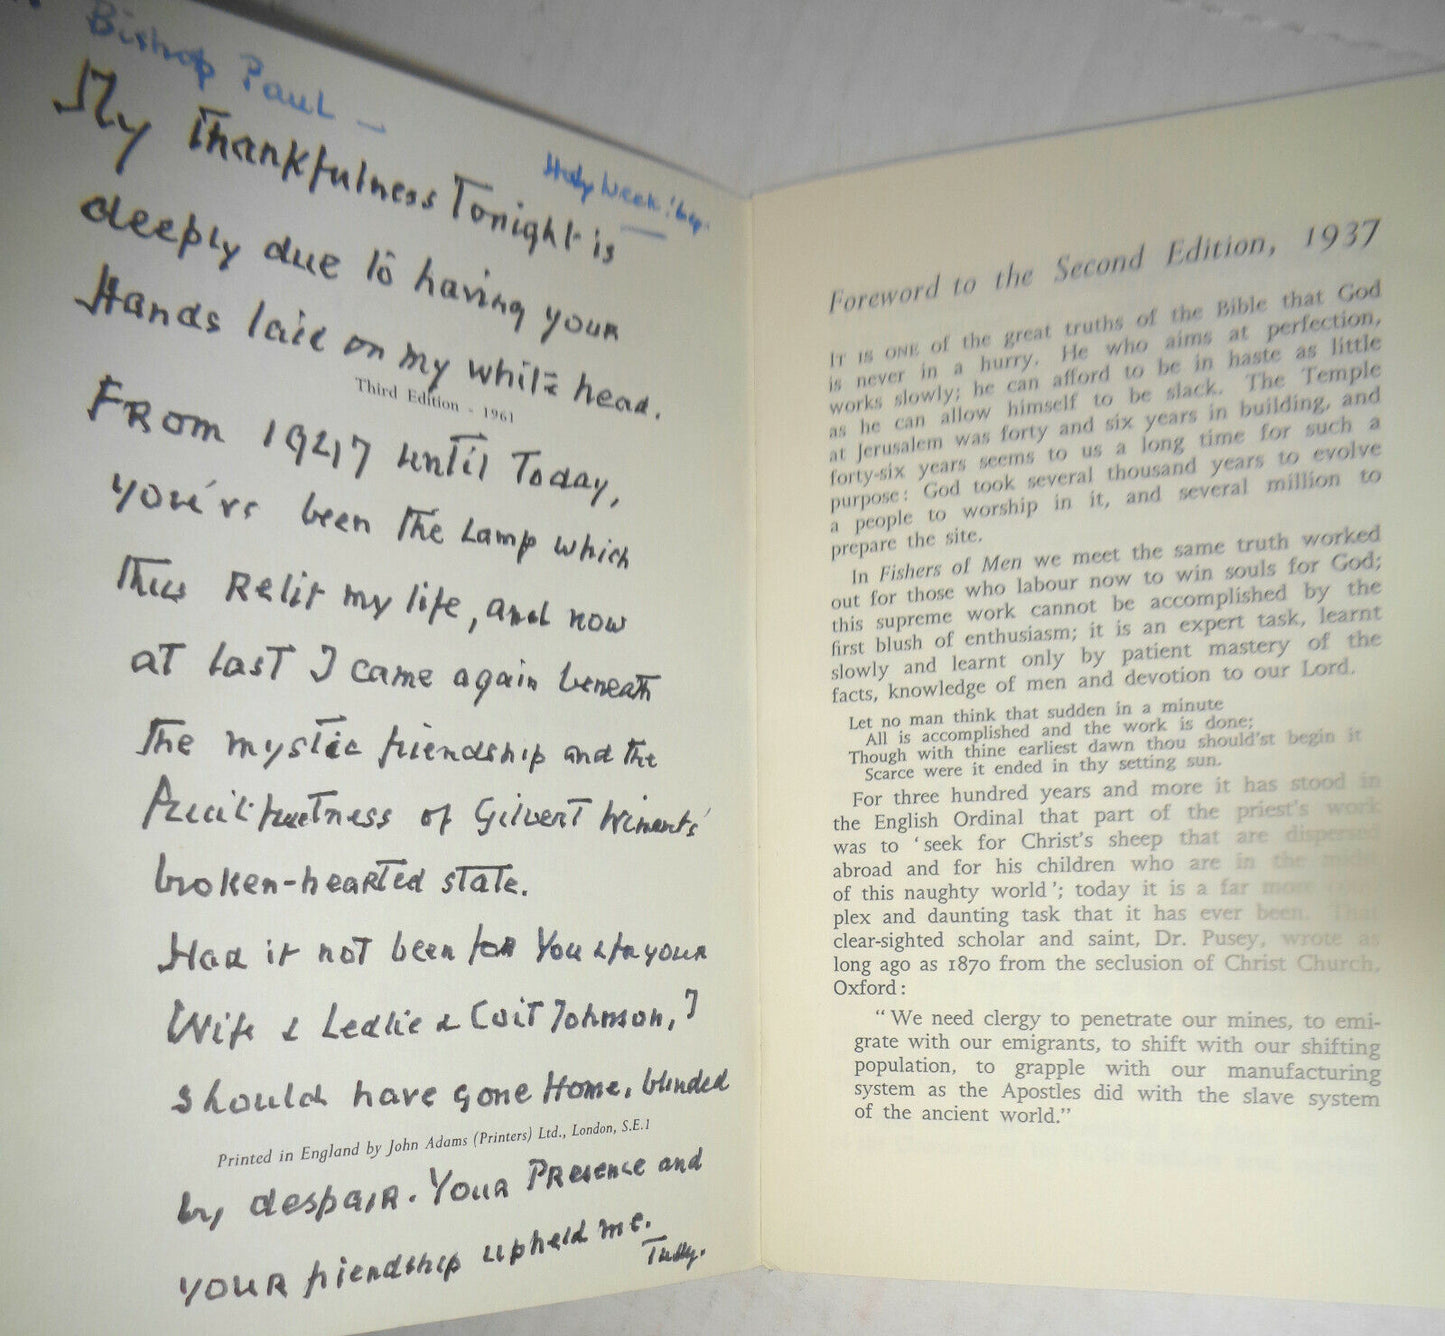 Bishop Paul —
Holy Week
My Thankfulness Tonight is
deeply due to having your
Hands laid on my white head.
Third Edition - 1961
From 1947 until Today,
you've been the Lamp which
thus Relit my life, and now
at Last I came again beneath
the mystic friendship and the
of Gilbert Winants'
broken-hearted state.
Had it not been for You & for your
Wife & Leslie & Coit Johnson, I
should have gone Home, blinded
Printed in England by John Adams (Printers) Ltd., London, S.E.1
by despair. Your Presence and
your friendship upheld me.
Tully.
Foreword to the Second Edition, 1937
IT IS ONE of the great truths of the Bible that God
is never in a hurry. He who aims at perfection,
works slowly; he can afford to be in haste as little
as he can allow himself to be slack. The Temple
at Jerusalem was forty and six years in building, and
forty-six years seems to us a long time for such a
purpose: God took several thousand years to evolve
a people to worship in it, and several million to
prepare the site.
In Fishers of Men we meet the same truth worked
out for those who labour now to win souls for God;
this supreme work cannot be accomplished by the
first blush of enthusiasm; it is an expert task, learnt
slowly and learnt only by patient mastery of the
facts, knowledge of men and devotion to our Lord.
Let no man think that sudden in a minute
All is accomplished and the work is done;
Though with thine earliest dawn thou should'st begin it
Scarce were it ended in thy setting sun.
For three hundred years and more it has stood in
the English Ordinal that part of the priest's work
was to 'seek for Christ's sheep that are dispersed
abroad and for his children who are in the midst
of this naughty world'; today it is a far more com-
plex and daunting task that it has ever been. That
clear-sighted scholar and saint, Dr. Pusey, wrote as
long ago as 1870 from the seclusion of Christ Church,
Oxford:
"We need clergy to penetrate our mines, to emi-
grate with our emigrants, to shift with our shifting
population, to grapple with our manufacturing
system as the Apostles did with the slave system
of the ancient world."